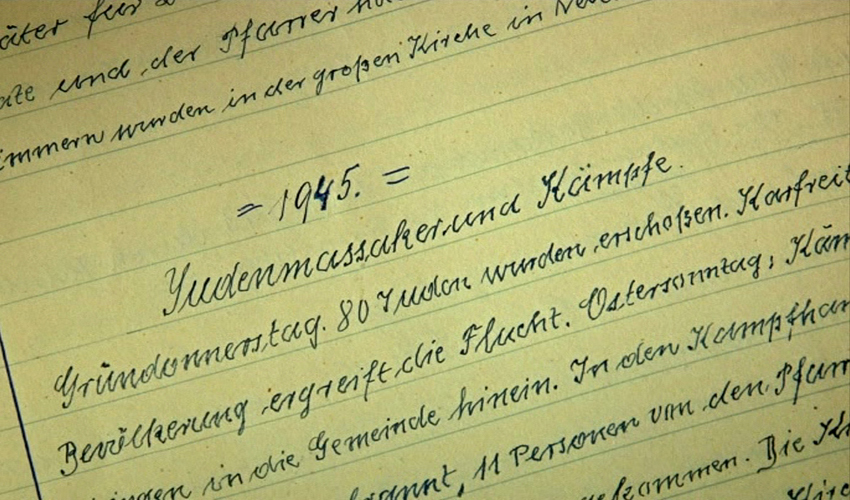 äter für
und der Pfarrer
immern wurden in der großen Kirche in
= 1945. =
Judenmassaker und Kämpfe.
Gründonnerstag. 80 Juden wurden erschoßen. Karfreit
Bevölkerung ergreift die Flucht. Ostersonntag; Käm
ingen in die Gemeinde hinein. In den Kampfhan
brannt, 11 Personen von den Pfarr
gekommen. Die